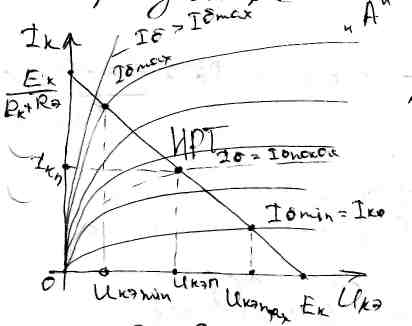 Iк
Iб > Iбmax
"A"
Iбmax
Eк
Rк+Rэ
ИРТ
Iб = Iбпокоя
Iкп
Iбmin = Iко
0
Uкэmin
Uкэп
Uкэmax
Eк
Uкэ